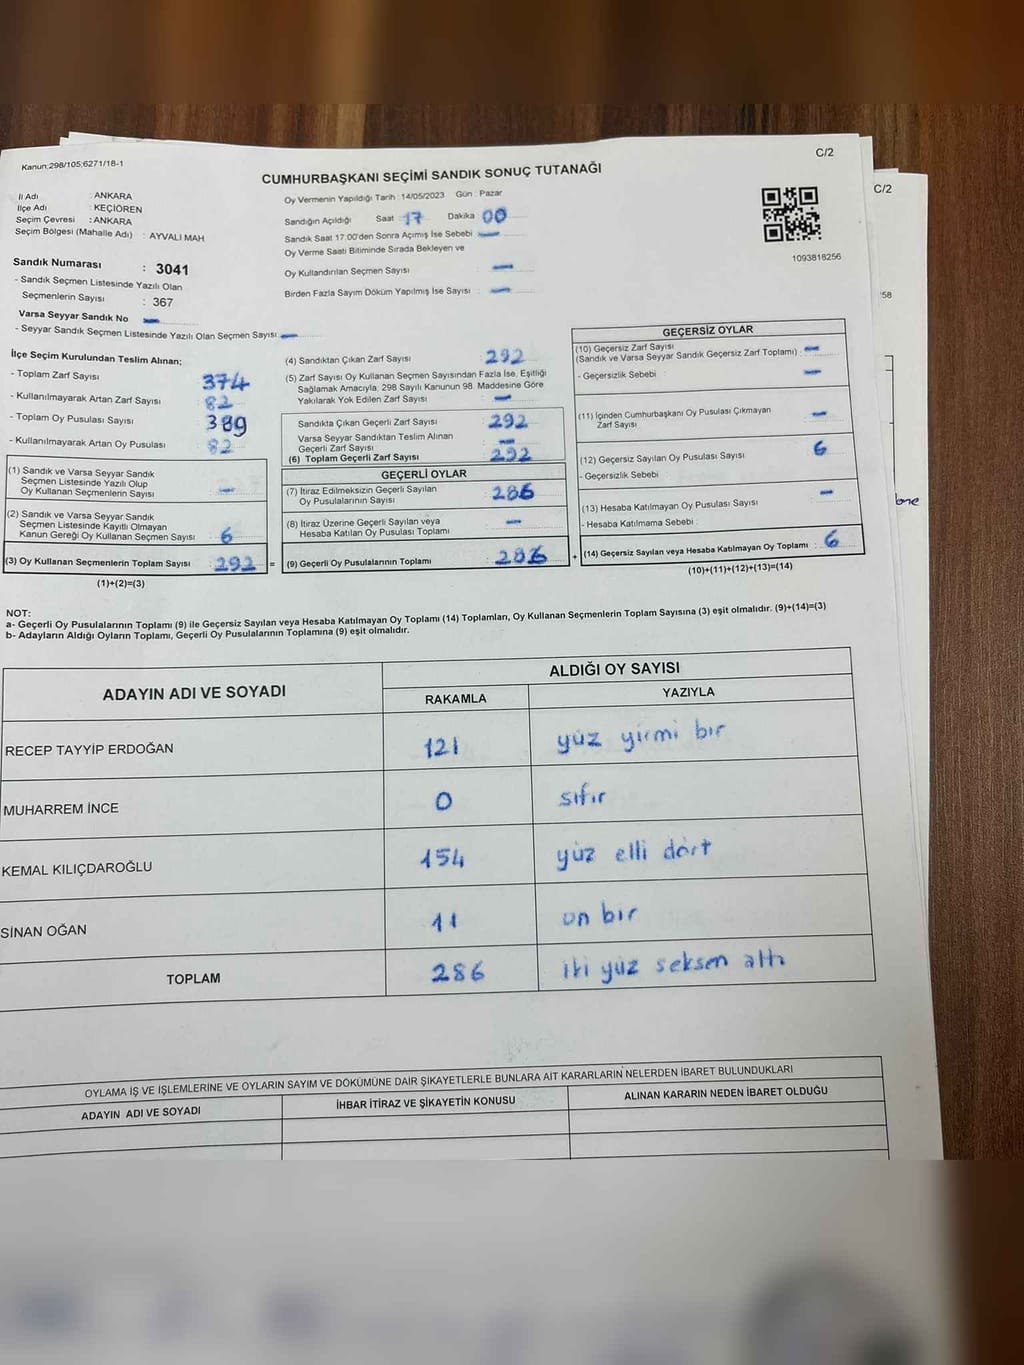 Kanun:298/105;6271/18-1
C/2
CUMHURBAŞKANI SEÇİMİ SANDIK SONUÇ TUTANAĞI
İl Adı : ANKARA
İlçe Adı : KEÇİÖREN
Seçim Çevresi : ANKARA
Seçim Bölgesi (Mahalle Adı) : AYVALI MAH
Sandık Numarası : 3041
- Sandık Seçmen Listesinde Yazılı Olan
Seçmenlerin Sayısı : 367
Varsa Seyyar Sandık No —
- Seyyar Sandık Seçmen Listesinde Yazılı Olan Seçmen Sayısı: —
Oy Vermenin Yapıldığı Tarih : 14/05/2023 Gün : Pazar
Sandığın Açıldığı Saat 17 Dakika 00
Sandık Saat 17:00'den Sonra Açımış İse Sebebi —
Oy Verme Saati Bitiminde Sırada Bekleyen ve
Oy Kullandırılan Seçmen Sayısı : —
Birden Fazla Sayım Döküm Yapılmış İse Sayısı : —
1093818256
C/2
:58
one
İlçe Seçim Kurulundan Teslim Alınan;
- Toplam Zarf Sayısı 374
- Kullanılmayarak Artan Zarf Sayısı 82
- Toplam Oy Pusulası Sayısı 389
- Kullanılmayarak Artan Oy Pusulası : 82
(1) Sandık ve Varsa Seyyar Sandık
Seçmen Listesinde Yazılı Olup
Oy Kullanan Seçmenlerin Sayısı : —
(2) Sandık ve Varsa Seyyar Sandık
Seçmen Listesinde Kayıtlı Olmayan
Kanun Gereği Oy Kullanan Seçmen Sayısı : 6
(3) Oy Kullanan Seçmenlerin Toplam Sayısı : 292 =
(1)+(2)=(3)
(4) Sandıktan Çıkan Zarf Sayısı : 292
(5) Zarf Sayısı Oy Kullanan Seçmen Sayısından Fazla İse, Eşitliği
Sağlamak Amacıyla, 298 Sayılı Kanunun 98. Maddesine Göre
Yakılarak Yok Edilen Zarf Sayısı : —
Sandıkta Çıkan Geçerli Zarf Sayısı : 292
Varsa Seyyar Sandıktan Teslim Alınan
Geçerli Zarf Sayısı : —
(6) Toplam Geçerli Zarf Sayısı : 292
GEÇERLİ OYLAR
(7) İtiraz Edilmeksizin Geçerli Sayılan
Oy Pusulalarının Sayısı : 286
(8) İtiraz Üzerine Geçerli Sayılan veya
Hesaba Katılan Oy Pusulası Toplamı : —
(9) Geçerli Oy Pusulalarının Toplamı : 286 +
GEÇERSİZ OYLAR
(10) Geçersiz Zarf Sayısı
(Sandık ve Varsa Seyyar Sandık Geçersiz Zarf Toplamı) : —
- Geçersizlik Sebebi : —
(11) İçinden Cumhurbaşkanı Oy Pusulası Çıkmayan
Zarf Sayısı : —
(12) Geçersiz Sayılan Oy Pusulası Sayısı : 6
- Geçersizlik Sebebi :
(13) Hesaba Katılmayan Oy Pusulası Sayısı : —
- Hesaba Katılmama Sebebi :
(14) Geçersiz Sayılan veya Hesaba Katılmayan Oy Toplamı : 6
(10)+(11)+(12)+(13)=(14)
NOT:
a- Geçerli Oy Pusulalarının Toplamı (9) ile Geçersiz Sayılan veya Hesaba Katılmayan Oy Toplamı (14) Toplamları, Oy Kullanan Seçmenlerin Toplam Sayısına (3) eşit olmalıdır. (9)+(14)=(3)
b- Adayların Aldığı Oyların Toplamı, Geçerli Oy Pusulalarının Toplamına (9) eşit olmalıdır.
ADAYIN ADI VE SOYADI
ALDIĞI OY SAYISI
RAKAMLA YAZIYLA
RECEP TAYYİP ERDOĞAN 121 yüz yirmi bir
MUHARREM İNCE 0 sıfır
KEMAL KILIÇDAROĞLU 154 yüz elli dört
SİNAN OĞAN 11 on bir
TOPLAM 286 iki yüz seksen altı
OYLAMA İŞ VE İŞLEMLERİNE VE OYLARIN SAYIM VE DÖKÜMÜNE DAİR ŞİKAYETLERLE BUNLARA AİT KARARLARIN NELERDEN İBARET BULUNDUKLARI
ADAYIN ADI VE SOYADI İHBAR İTİRAZ VE ŞİKAYETİN KONUSU ALINAN KARARIN NEDEN İBARET OLDUĞU